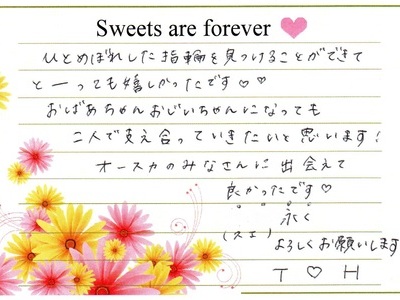 Sweets are forever
ひとめぼれした指輪を見つけることができて
と一っても嬉しかったです♡♡
おばあちゃんおじいちゃんになっても
二人で支え合っていきたいと思います!
オースカのみなさんに出会えて
良かったです♡
永く
(スエ)
よろしくお願いします
T♡H